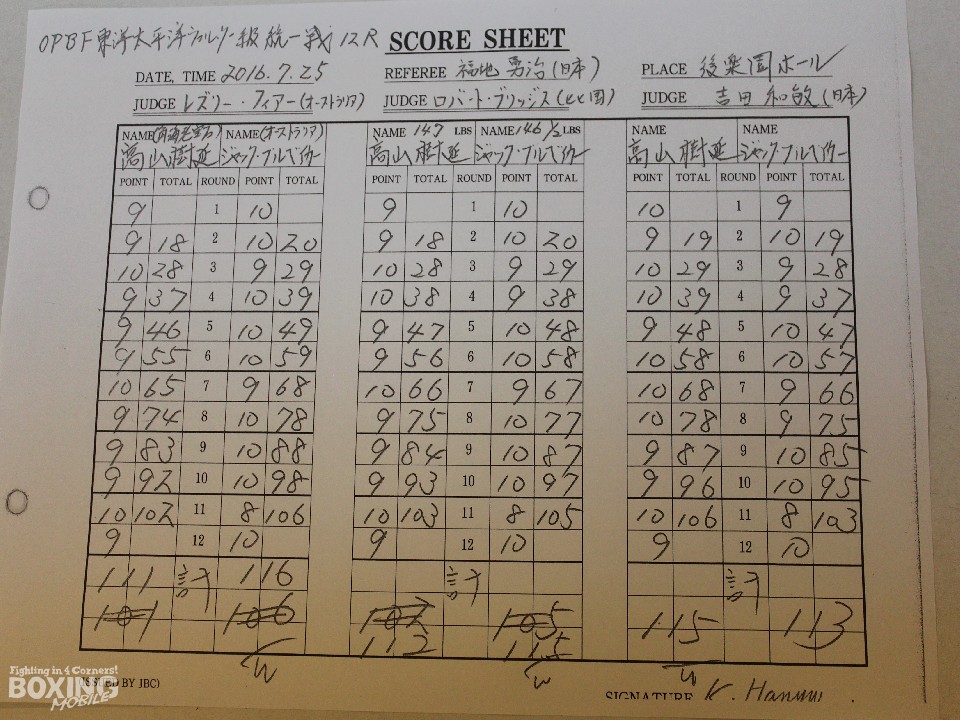 OPBF東洋太平洋ウェルター級統一戦12R SCORE SHEET
DATE, TIME 2016.7.25 REFEREE 福地勇治(日本) PLACE 後楽園ホール
JUDGE レズリー・フィアー(オーストラリア) JUDGE ロバート・ブリッジス(比国) JUDGE 吉田和敏(日本)
NAME NAME(オーストラリア) NAME 147 LBS NAME 146 1/2 LBS NAME NAME
高山樹延 ジャック・ブルベイカー 高山樹延 ジャック・ブルベイカー 高山樹延 ジャック・ブルベイカー
POINT TOTAL ROUND POINT TOTAL POINT TOTAL ROUND POINT TOTAL POINT TOTAL ROUND POINT TOTAL
9 1 10 9 1 10 10 1 9
9 18 2 10 20 9 18 2 10 20 9 19 2 10 19
10 28 3 9 29 10 28 3 9 29 10 29 3 9 28
9 37 4 10 39 10 38 4 9 38 10 39 4 9 37
9 46 5 10 49 9 47 5 10 48 9 48 5 10 47
9 55 6 10 59 9 56 6 10 58 10 58 6 10 57
10 65 7 9 68 10 66 7 9 67 10 68 7 9 66
9 74 8 10 78 9 75 8 10 77 10 78 8 9 75
9 83 9 10 88 9 84 9 10 87 9 87 9 10 85
9 92 10 10 98 9 93 10 10 97 9 96 10 10 95
10 102 11 8 106 10 103 11 8 105 10 106 11 8 103
9 12 10 9 12 10 9 12 10
111 計 116 計 計
101 106 107 105
112 115 115 113
W W W
(ISSUED BY JBC) SIGNATURE
Fighting in 4 Corners!
BOXING
MOBILE